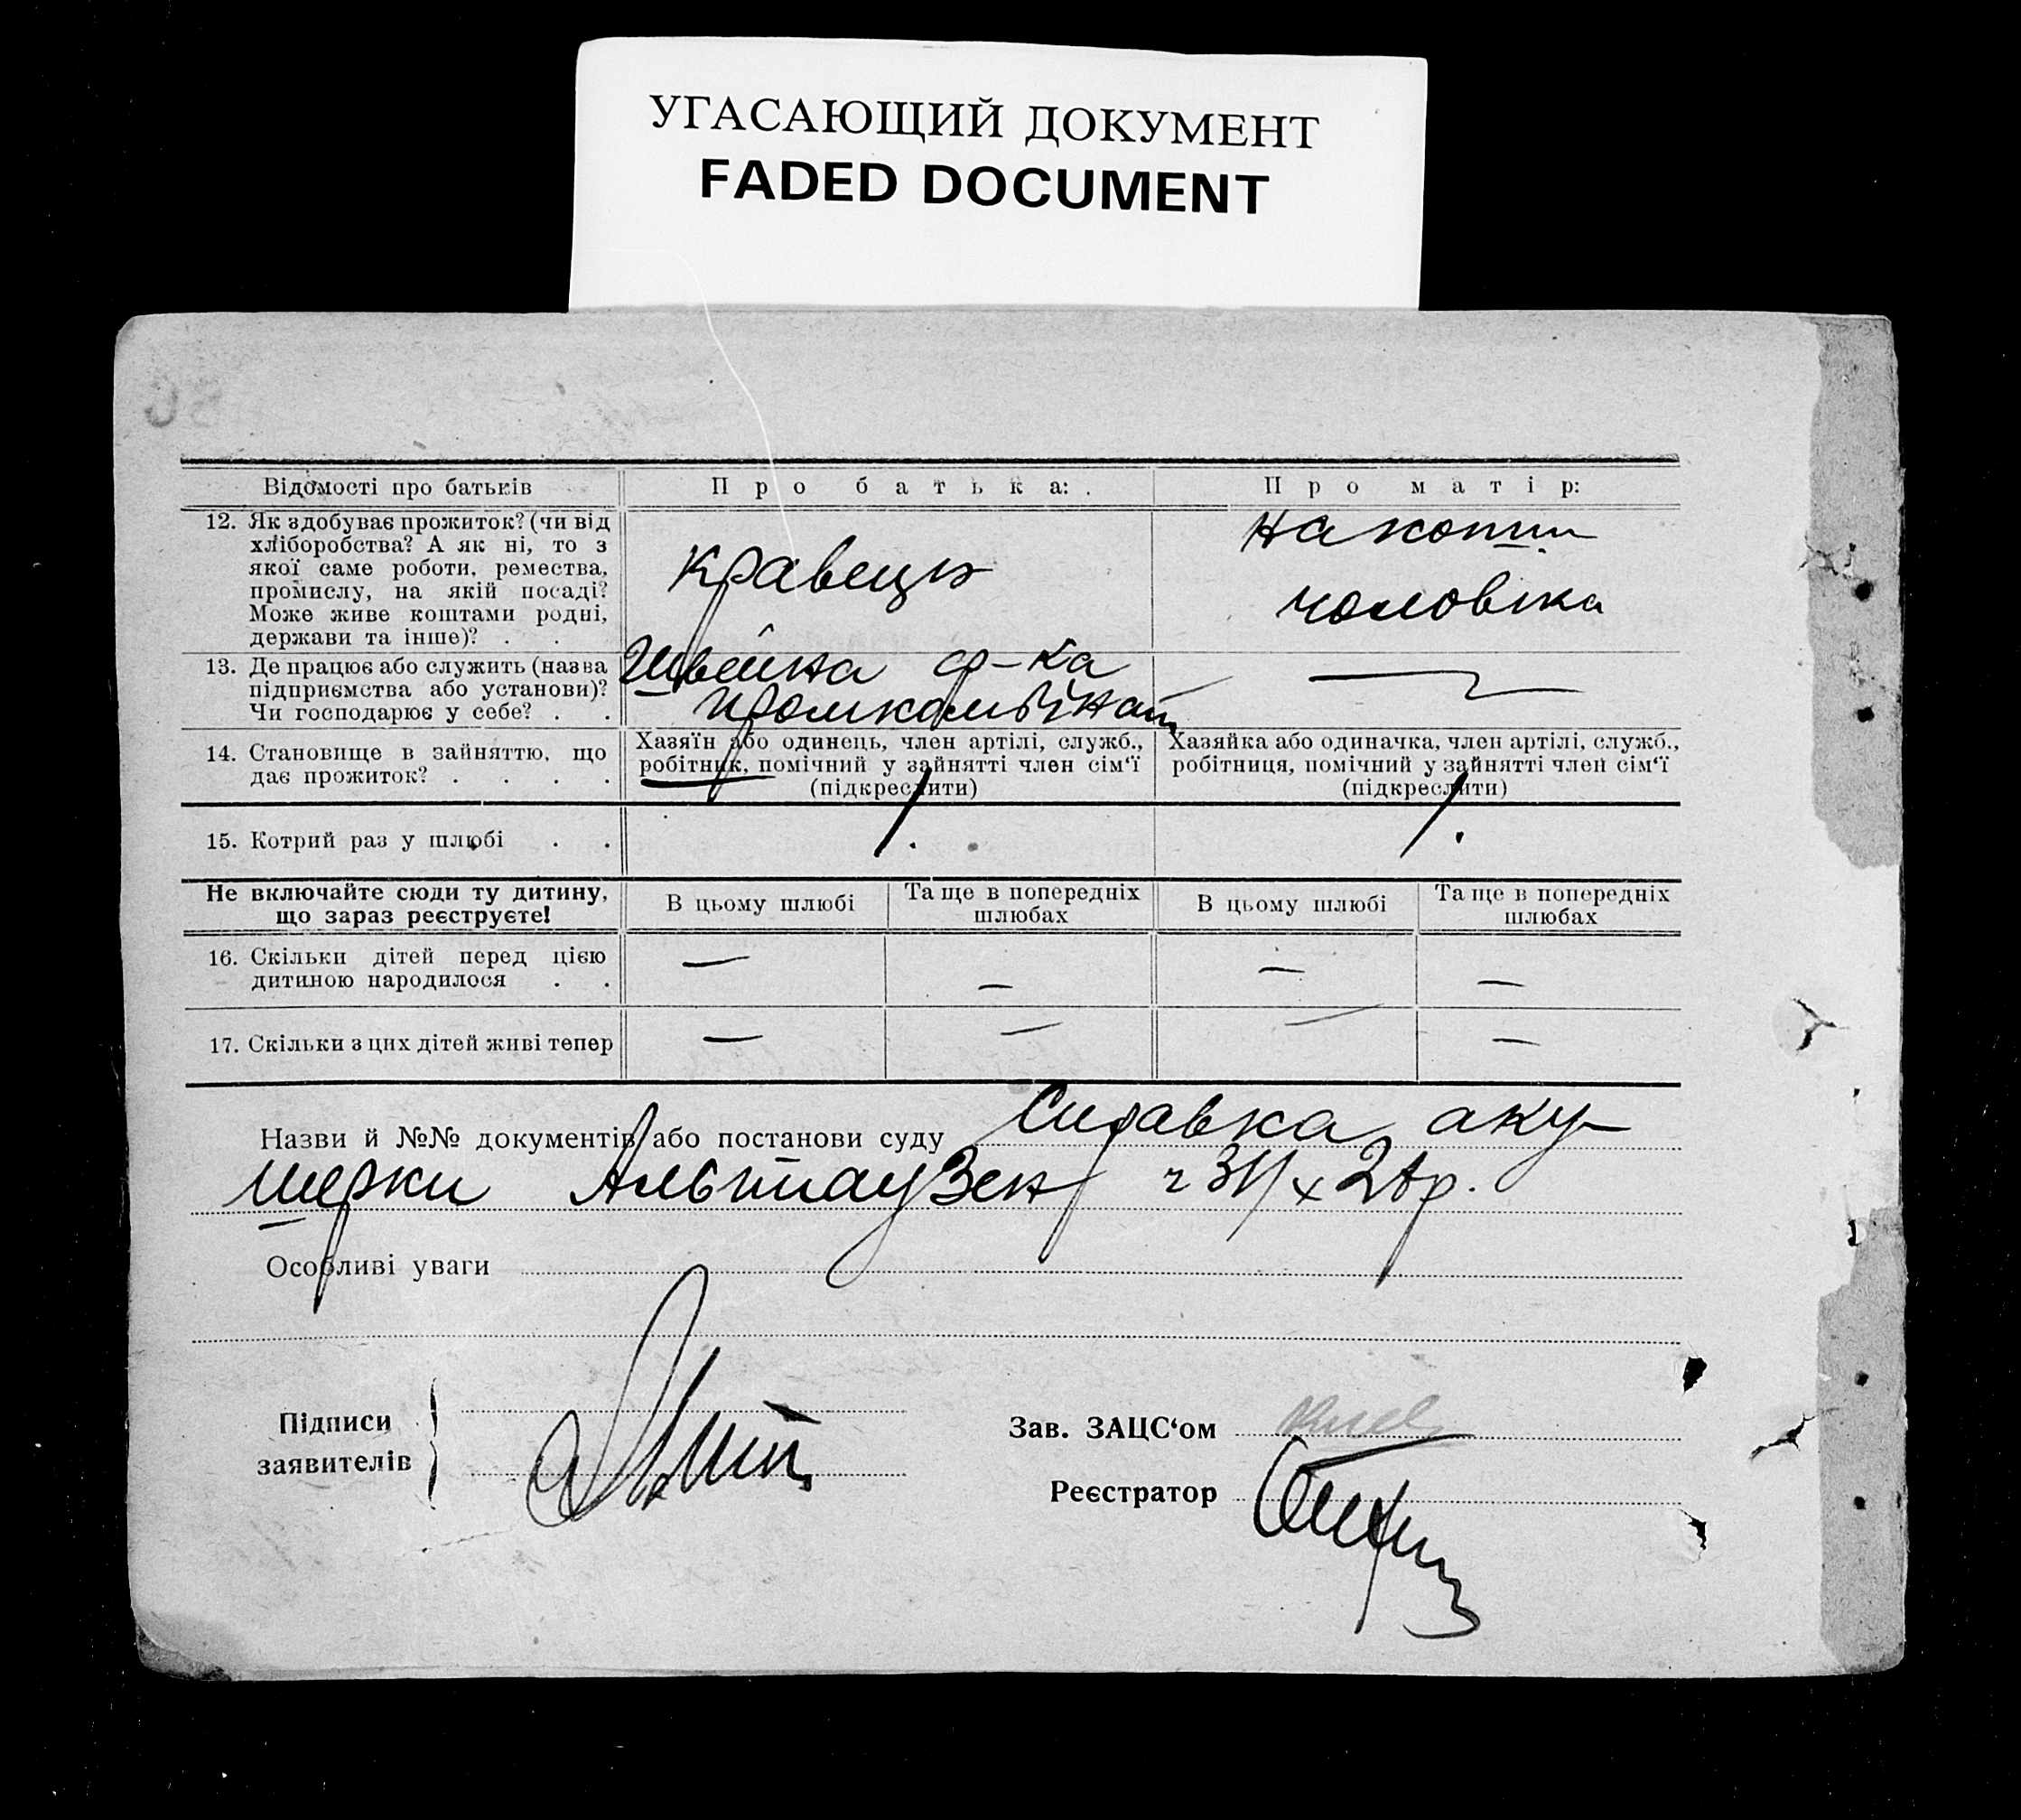 УГАСАЮЩИЙ ДОКУМЕНТ
FADED DOCUMENT
Відомості про батьків
Про батька:
Про матір:
12. Як здобуває прожиток? (чи від
хліборобства? А як ні, то з
якої саме роботи, ремества,
промислу, на якій посаді?
Може живе коштами родні,
держави та інше)? . .
кравець
на кошти
чоловіка
13. Де працює або служить (назва
підприємства або установи)?
Чи господарює у себе? . .
Швейна ф-ка
Промкомбінат
14. Становище в зайняттю, що
дає прожиток? . . . .
Хазяїн або одинець, член артілі, служб.,
робітник, помічний у зайнятті член сім‘ї
(підкреслити)
Хазяйка або одиначка, член артілі, служб.,
робітниця, помічний у зайнятті член сім‘ї
(підкреслити)
15. Котрий раз у шлюбі . .
1.
1.
Не включайте сюди ту дитину,
що зараз реєструєте!
В цьому шлюбі
Та ще в попередніх
шлюбах
В цьому шлюбі
Та ще в попередніх
шлюбах
16. Скільки дітей перед цією
дитиною народилося . .
— — — —
17. Скільки з цих дітей живі тепер
— — — —
Назви й №№ документів або постанови суду Справка аку-
шерки Альтгаузен
Особливі уваги
Підписи
заявителів
Зав. ЗАЦС‘ом
Реєстратор